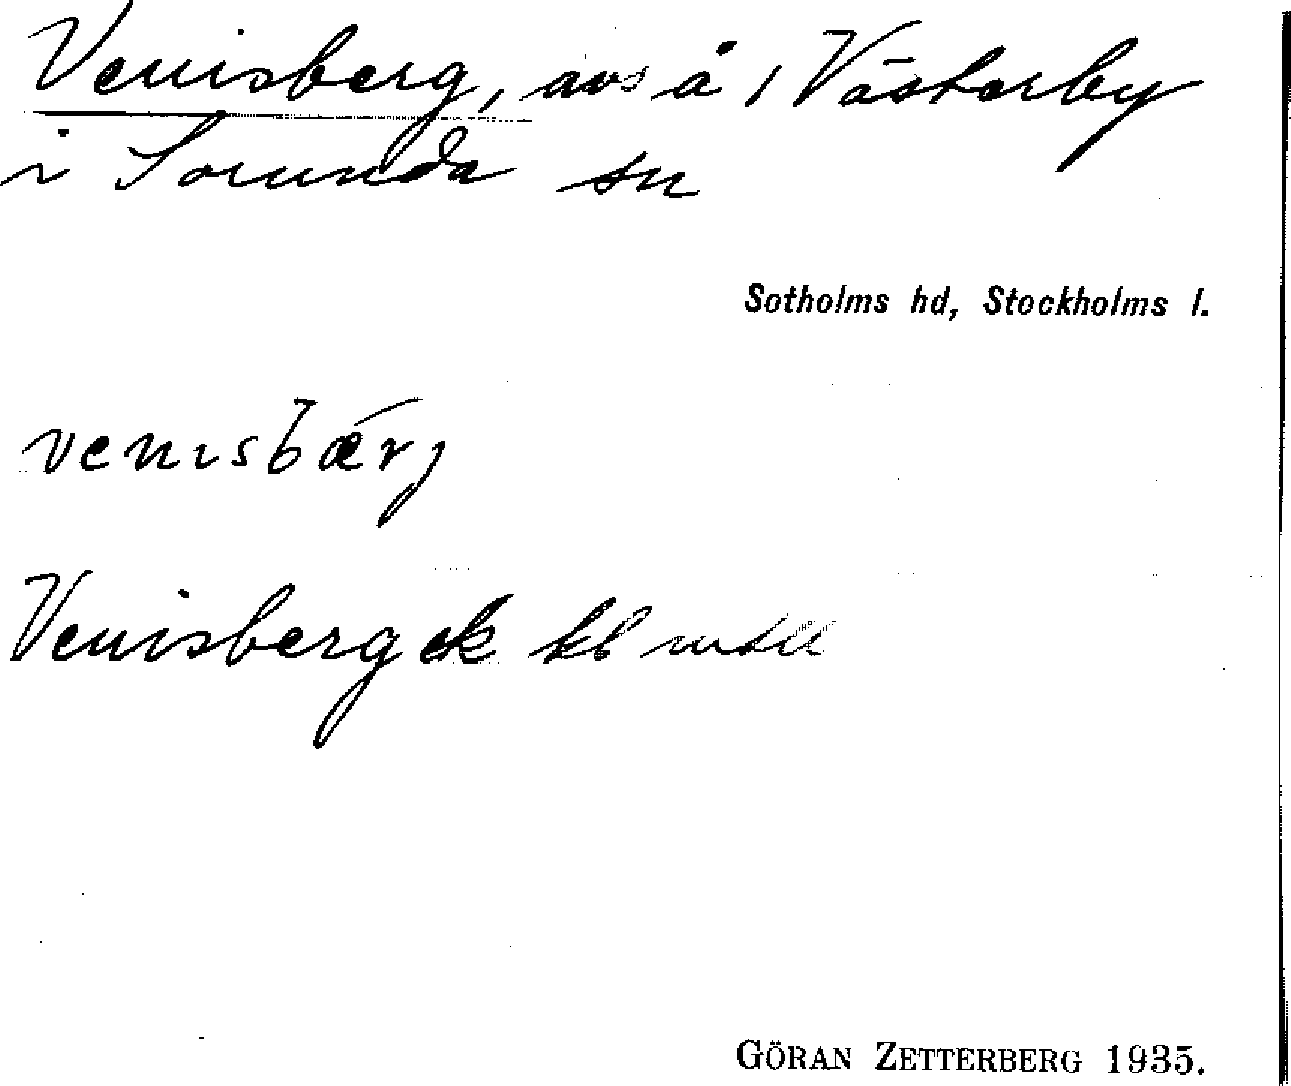 Venisberg, avs å 1 Västerby
i Sorunda sn
Sotholms hd, Stockholms l.
venısbærj
Venisberg ek kb
GÖRAN ZETTERBERG 1935.